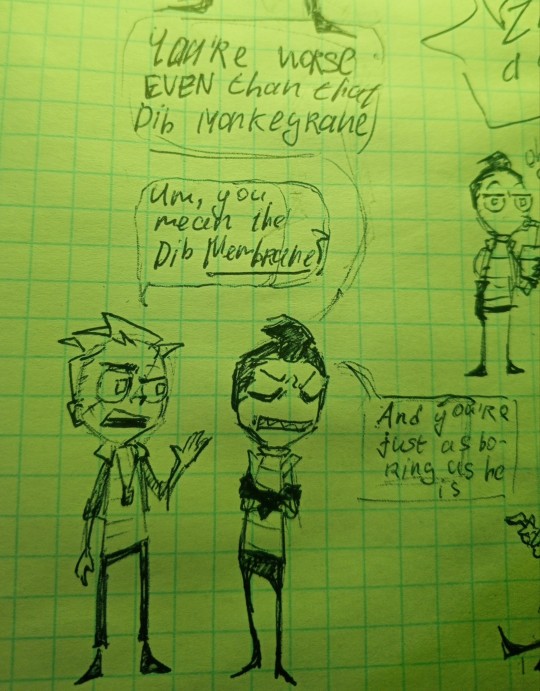 You're worse
EVEN than that
Dib Monkeyrane
Um, you
mean the
Dib Membrane?
And you're
just as bo-
Ring as he
is